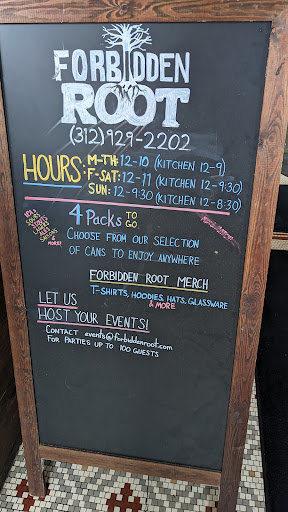 FORBIDDEN
ROOT
(312) 929-2202
HOURS: M-TH: 12-10 (KITCHEN 12-9)
F-SAT: 12-11 (KITCHEN 12-9:30)
SUN: 12-9:30 (KITCHEN 12-8:30)
4 Packs TO GO
& MORE!
CHOOSE FROM OUR SELECTION
OF CANS TO ENJOY ANYWHERE
FORBIDDEN ROOT MERCH
T-SHIRTS, HOODIES, HATS, GLASSWARE
& MORE
LET US
HOST YOUR EVENTS!
CONTACT events@forbiddenroot.com
FOR PARTIES UP TO 100 GUESTS